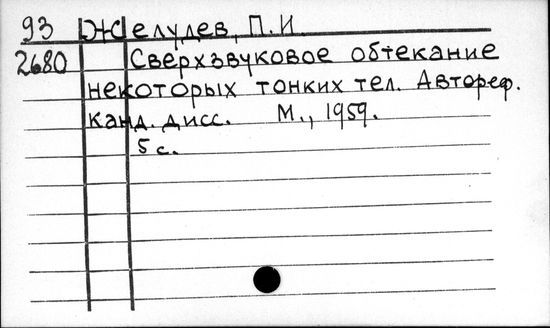 93 Желудев, П. И.
2680 Сверхзвуковое обтекание
некоторых тонких тел. Автореф.
канд. дисс. М., 1959.
5 с.